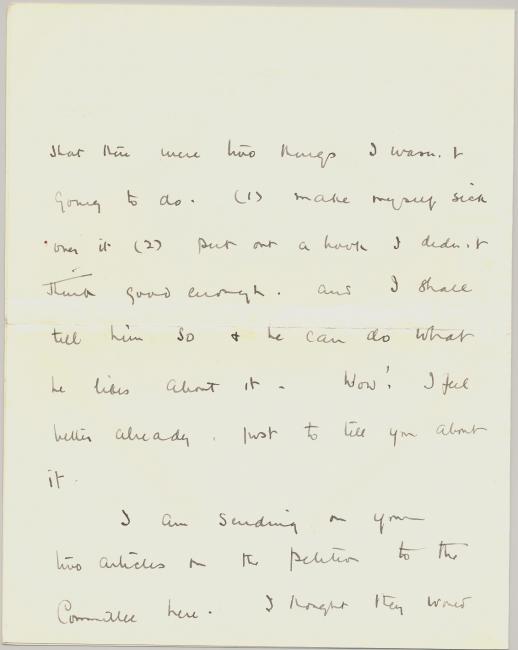 that there were two things I wasn't
going to do. (1) make myself sick
over it (2) put out a book I didn't
think good enough. and I shall
tell him so & he can do what
he likes about it - Wow! I feel
better already, just to tell you about
it.
I am sending on your
two articles on the petition to the
Committee here. I thought they would